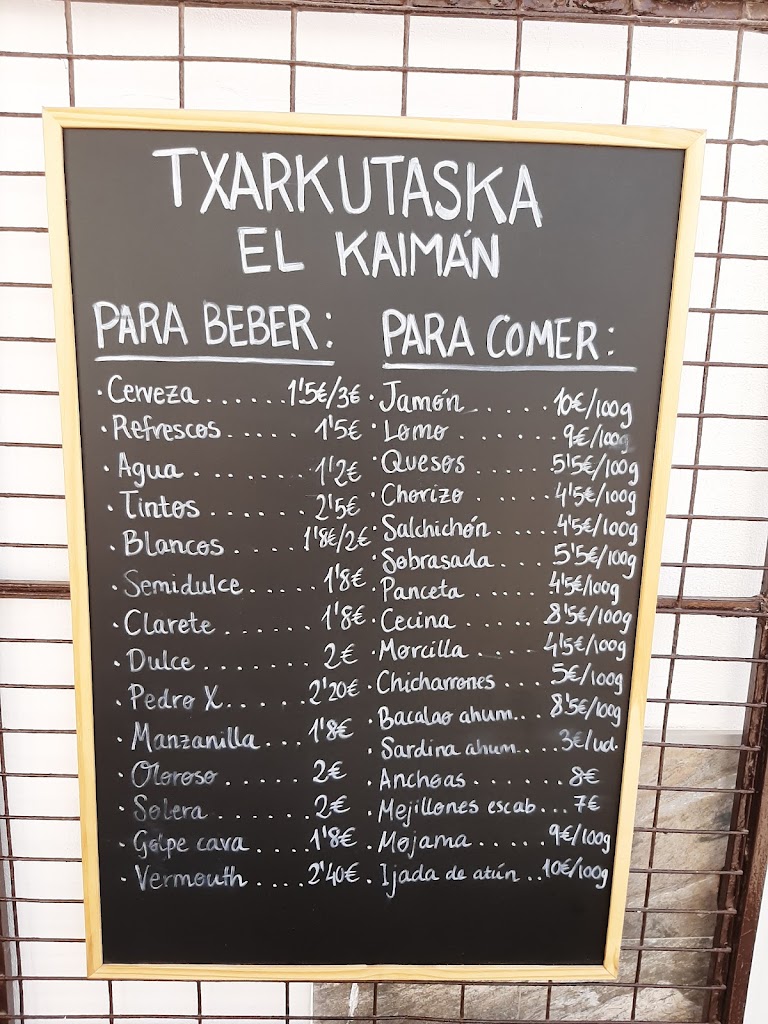 TXARKUTASKA
EL KAIMÁN
PARA BEBER:
· Cerveza ...... 1'5€/3€
· Refrescos ..... 1'5€
· Agua ........ 1'2€
· Tintos ....... 2'5€
· Blancos .... 1'8€/2€
· Semidulce ..... 1'8€
· Clarete ....... 1'8€
· Dulce ....... 2€
· Pedro X...... 2'20€
· Manzanilla ... 1'8€
· Oloroso ..... 2€
· Solera ...... 2€
· Golpe cava .... 1'8€
· Vermouth .... 2'40€
PARA COMER:
· Jamón ..... 10€/100g
· Lomo ....... 9€/100g
· Quesos ..... 5'5€/100g
· Chorizo .... 4'5€/100g
· Salchichón .... 4'5€/100g
· Sobrasada .... 5'5€/100g
· Panceta ...... 4'5€/100g
· Cecina ...... 8'5€/100g
· Morcilla .... 4'5€/100g
· Chicharrones .... 5€/100g
· Bacalao ahum... 8'5€/100g
· Sardina ahum.... 3€/ud.
· Anchoas ....... 8€
· Mejillones escab... 7€
· Mojama ..... 9€/100g
· Ijada de atún .. 10€/100g